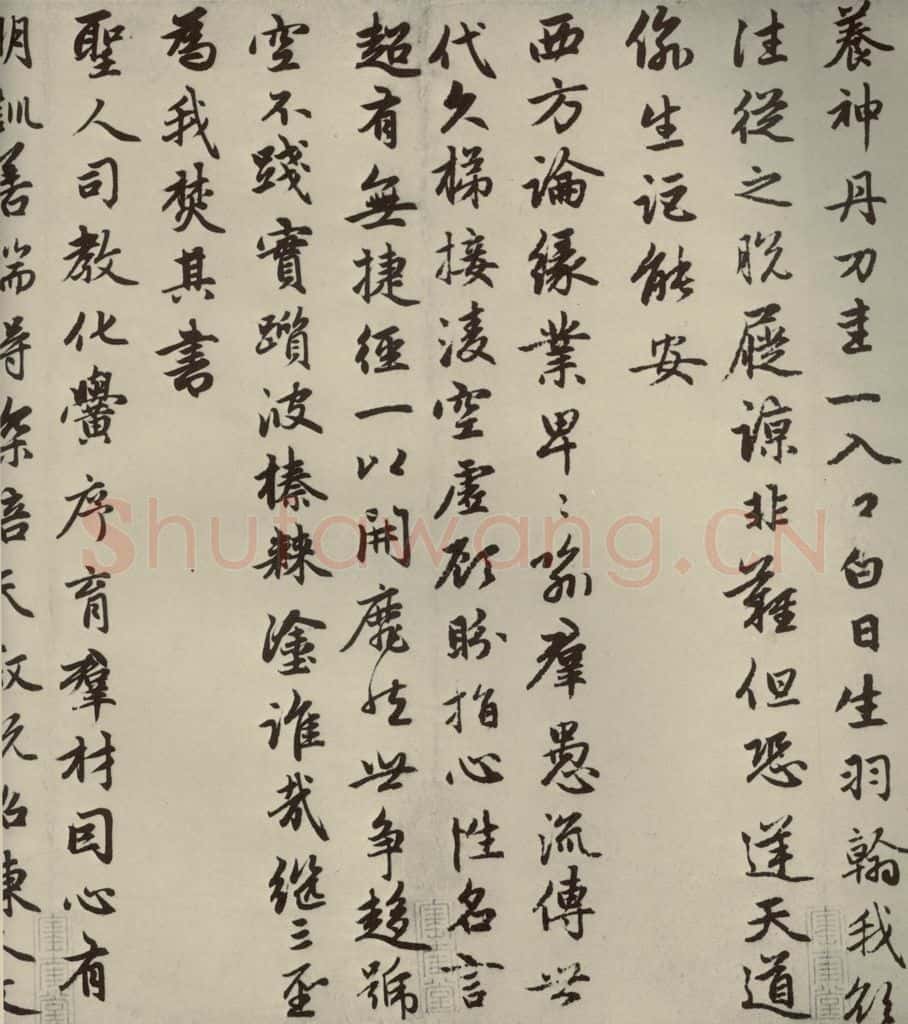 養神丹刀圭一入口白日生羽翰我欲
往從之脫屣諒非難但恐逆天道
偷生詎能安
西方論緣業卑〻喻羣愚流傳世
代久梯接淩空虛顧眄指心性名言
超有無捷徑一以開靡然世爭趨號
空不踐實躓彼榛棘塗誰哉繼三聖
為我焚其書
聖人司教化黌序育羣材因心有
明訓善端得深培天敘既昭陳人文
Shufawang.CN